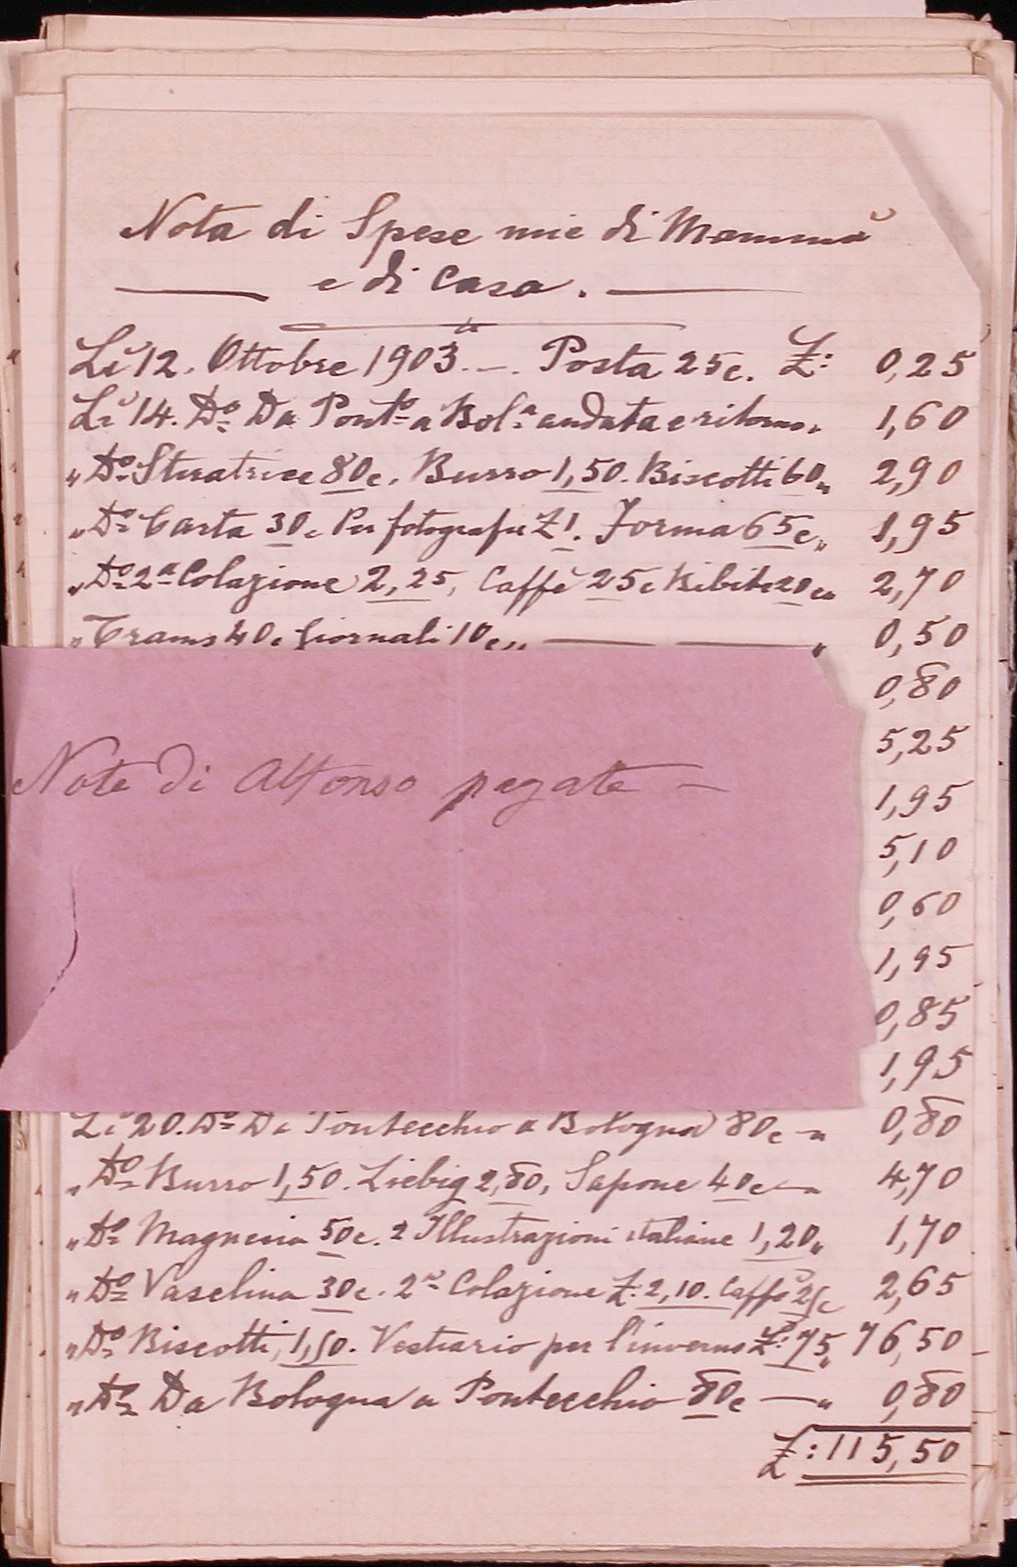 Nota di Spese mie di Mammà
e di Casa.
Li 12. Ottobre 1903. — . Posta 25c. £: 0,25
Li 14. Dº Da Pontº a Bolª andata e ritorno „ 1,60
„ Dº Stiratrice 80c. Burro 1,50. Biscotti 60 „ 2,90
„ Dº Carta 30c Per fotografie £ 1. Forma 65c „ 1,95
„ Dº 2ª Colazione 2,25, Caffè 25c Bibite 20c „ 2,70
„ Trams 40c Giornali 10c „ — „ 0,50
0,80
5,25
Note di Alfonso pagate —
1,95
5,10
0,60
1,95
0,85
1,95
Li 20. Dº Da Pontecchio a Bologna 80c — „ 0,80
„ Dº Burro 1,50. Liebig 2,80, Sapone 40c — „ 4,70
„ Dº Magnesia 50c. 2 Illustrazioni italiane 1,20 „ 1,70
„ Dº Vaselina 30c. 2ª Colazione £: 2,10. Caffè 25c 2,65
„ Dº Biscotti, 1,50. Vestiario per l'inverno £: 75 „ 76,50
„ Dº Da Bologna a Pontecchio 80c — „ 0,80
£: 115,50